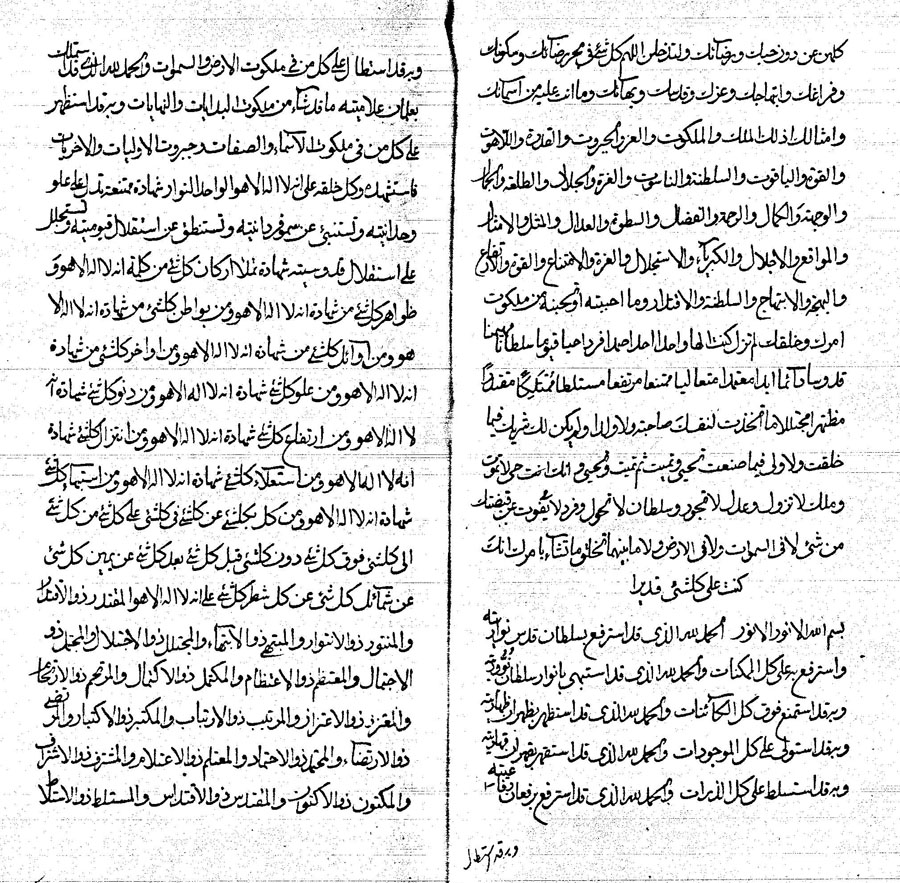 كلهن عن دون حبك ورضائك ولتدخلن اللهم كل شئ في بحر رضائك ومكونات
وقربائك وابتهاجك وعزك وقدسك وبهائك وما انت عليه من اسمائك
وامثالك اذ لك الملك والملكوت والعز والجبروت والقدرة واللاهوت
والقوة والياقوت والسلطنة والناسوت والعزة والجلال والطلعة والجمال
والوجهة والكمال والرحمة والفضال والسطوة والعدال والمثل والامثال
والمواقع والاجلال والكبرياء والاستجلال والعزة والامتناع والقوة والارتفاع
والبهجة والابتهاج والسلطنة والاقتدار وما احببته او تحبنه من ملكوت
امرك وخلقك لم تزل كنت الها واحدا احدا صمدا فردا حيا قيوما سلطانا مهيمنا
قدوسا دائما ابدا معتمدا متعاليا ممتنعا مرتفعا متسلطا ممتلكا مقتدرا
مظهرا مجتللا ما اتخذت لنفسك صاحبة ولا ولدا ولم يكن لك شريك فيما
خلقت ولا ولي فيما صنعت تحيي وتميت ثم تميت وتحيي وانك انت حي لا تموت
وملك لا تزول وعدل لا تجور وسلطان لا تحول وفرد لا يفوت عن قبضتك
من شئ لا في السموات ولا في الارض ولا ما بينهما تخلق ما تشاء بامرك انك
كنت على كلشئ قديرا
بسم الله الانور الانور الحمد لله الذي قد استرفع بسلطان قدس نواريته
واسترفع به على كل الممكنات والحمد لله الذي قد استبهى بانوار سلطان
وبه قد استمنع فوق كل الكائنات والحمد لله الذي قد استظهر بظهران ظهاريته
وبه قد استولى على كل الموجودات والحمد لله الذي قد استقهر بقهران قهاريته
وبه قد استسلط على كل الذرات والحمد لله الذي قد استرفع برفعان
وبه قد استطال
وبه قد استطال على كل من في ملكوت الارض والسموات والحمد لله الذي قد
بعلمان علاميته ما قد شاء من ملكوت البدايات والنهايات وبه قد استظهر
على كل من في ملكوت الاسماء والصفات وجبروت الاوليات والاخريات
فاستشهدك وكل خلقه على انه لا اله الا هو الواحد النوار شهادة ممتنعة تدل على علو
وحدانيته وتستنبئ عن سمو فردانيته وتستنطق عن استقلال قيوميته وتستجلل
على استقلال قدوسيته شهادة تملأ اركان كل شئ من كلمة انه لا اله الا هو و
ظواهر كل شئ من شهادة انه لا اله الا هو ومن بواطن كلشئ من شهادة انه لا اله الا
هو ومن اوائل كل شئ من شهادة انه لا اله الا هو ومن اواخر كلشئ من شهادة
انه لا اله الا هو ومن علو كل شئ شهادة انه لا اله الا هو ومن دنو كل شئ شهادة انه
لا اله الا هو ومن ارتفاع كل شئ شهادة انه لا اله الا هو ومن انتزال كلشئ شهادة
انه لا اله الا هو ومن استعلاء كلشئ شهادة انه لا اله الا هو ومن كلشئ
شهادة انه لا اله الا هو ومن كل بكلشئ عن كلشئ في كلشئ على كلشئ من كل شئ
الى كلشئ فوق كل شئ دون كلشئ قبل كل شئ بعد كل شئ عن يمين كل شئ
عن شمائل كل شئ عن كل شطر كل شئ على انه لا اله الا هو المقتدر ذو الاقتدار
والمتنور ذو الانتوار والمبتهي ذو الابتهاء والمجتلل ذو الاجتلال والمجتمل ذو
الاجتمال والمعتظم ذو الاعتظام والمكتمل ذو الاكتمال والمرتحم ذو الارتحام
والمعتزز ذو الاعتزاز والمرتبب ذو الارتباب والمكتبر ذو الاكتبار والمرتضي
ذو الارتضاء والمحتمد ذو الاحتماد والمعتلم ذو الاعتلام والمشترف ذو الاشتراف
والمكتون ذو الاكتوان والمقتدس ذو الاقتداس والمستلط ذو الاستلاط